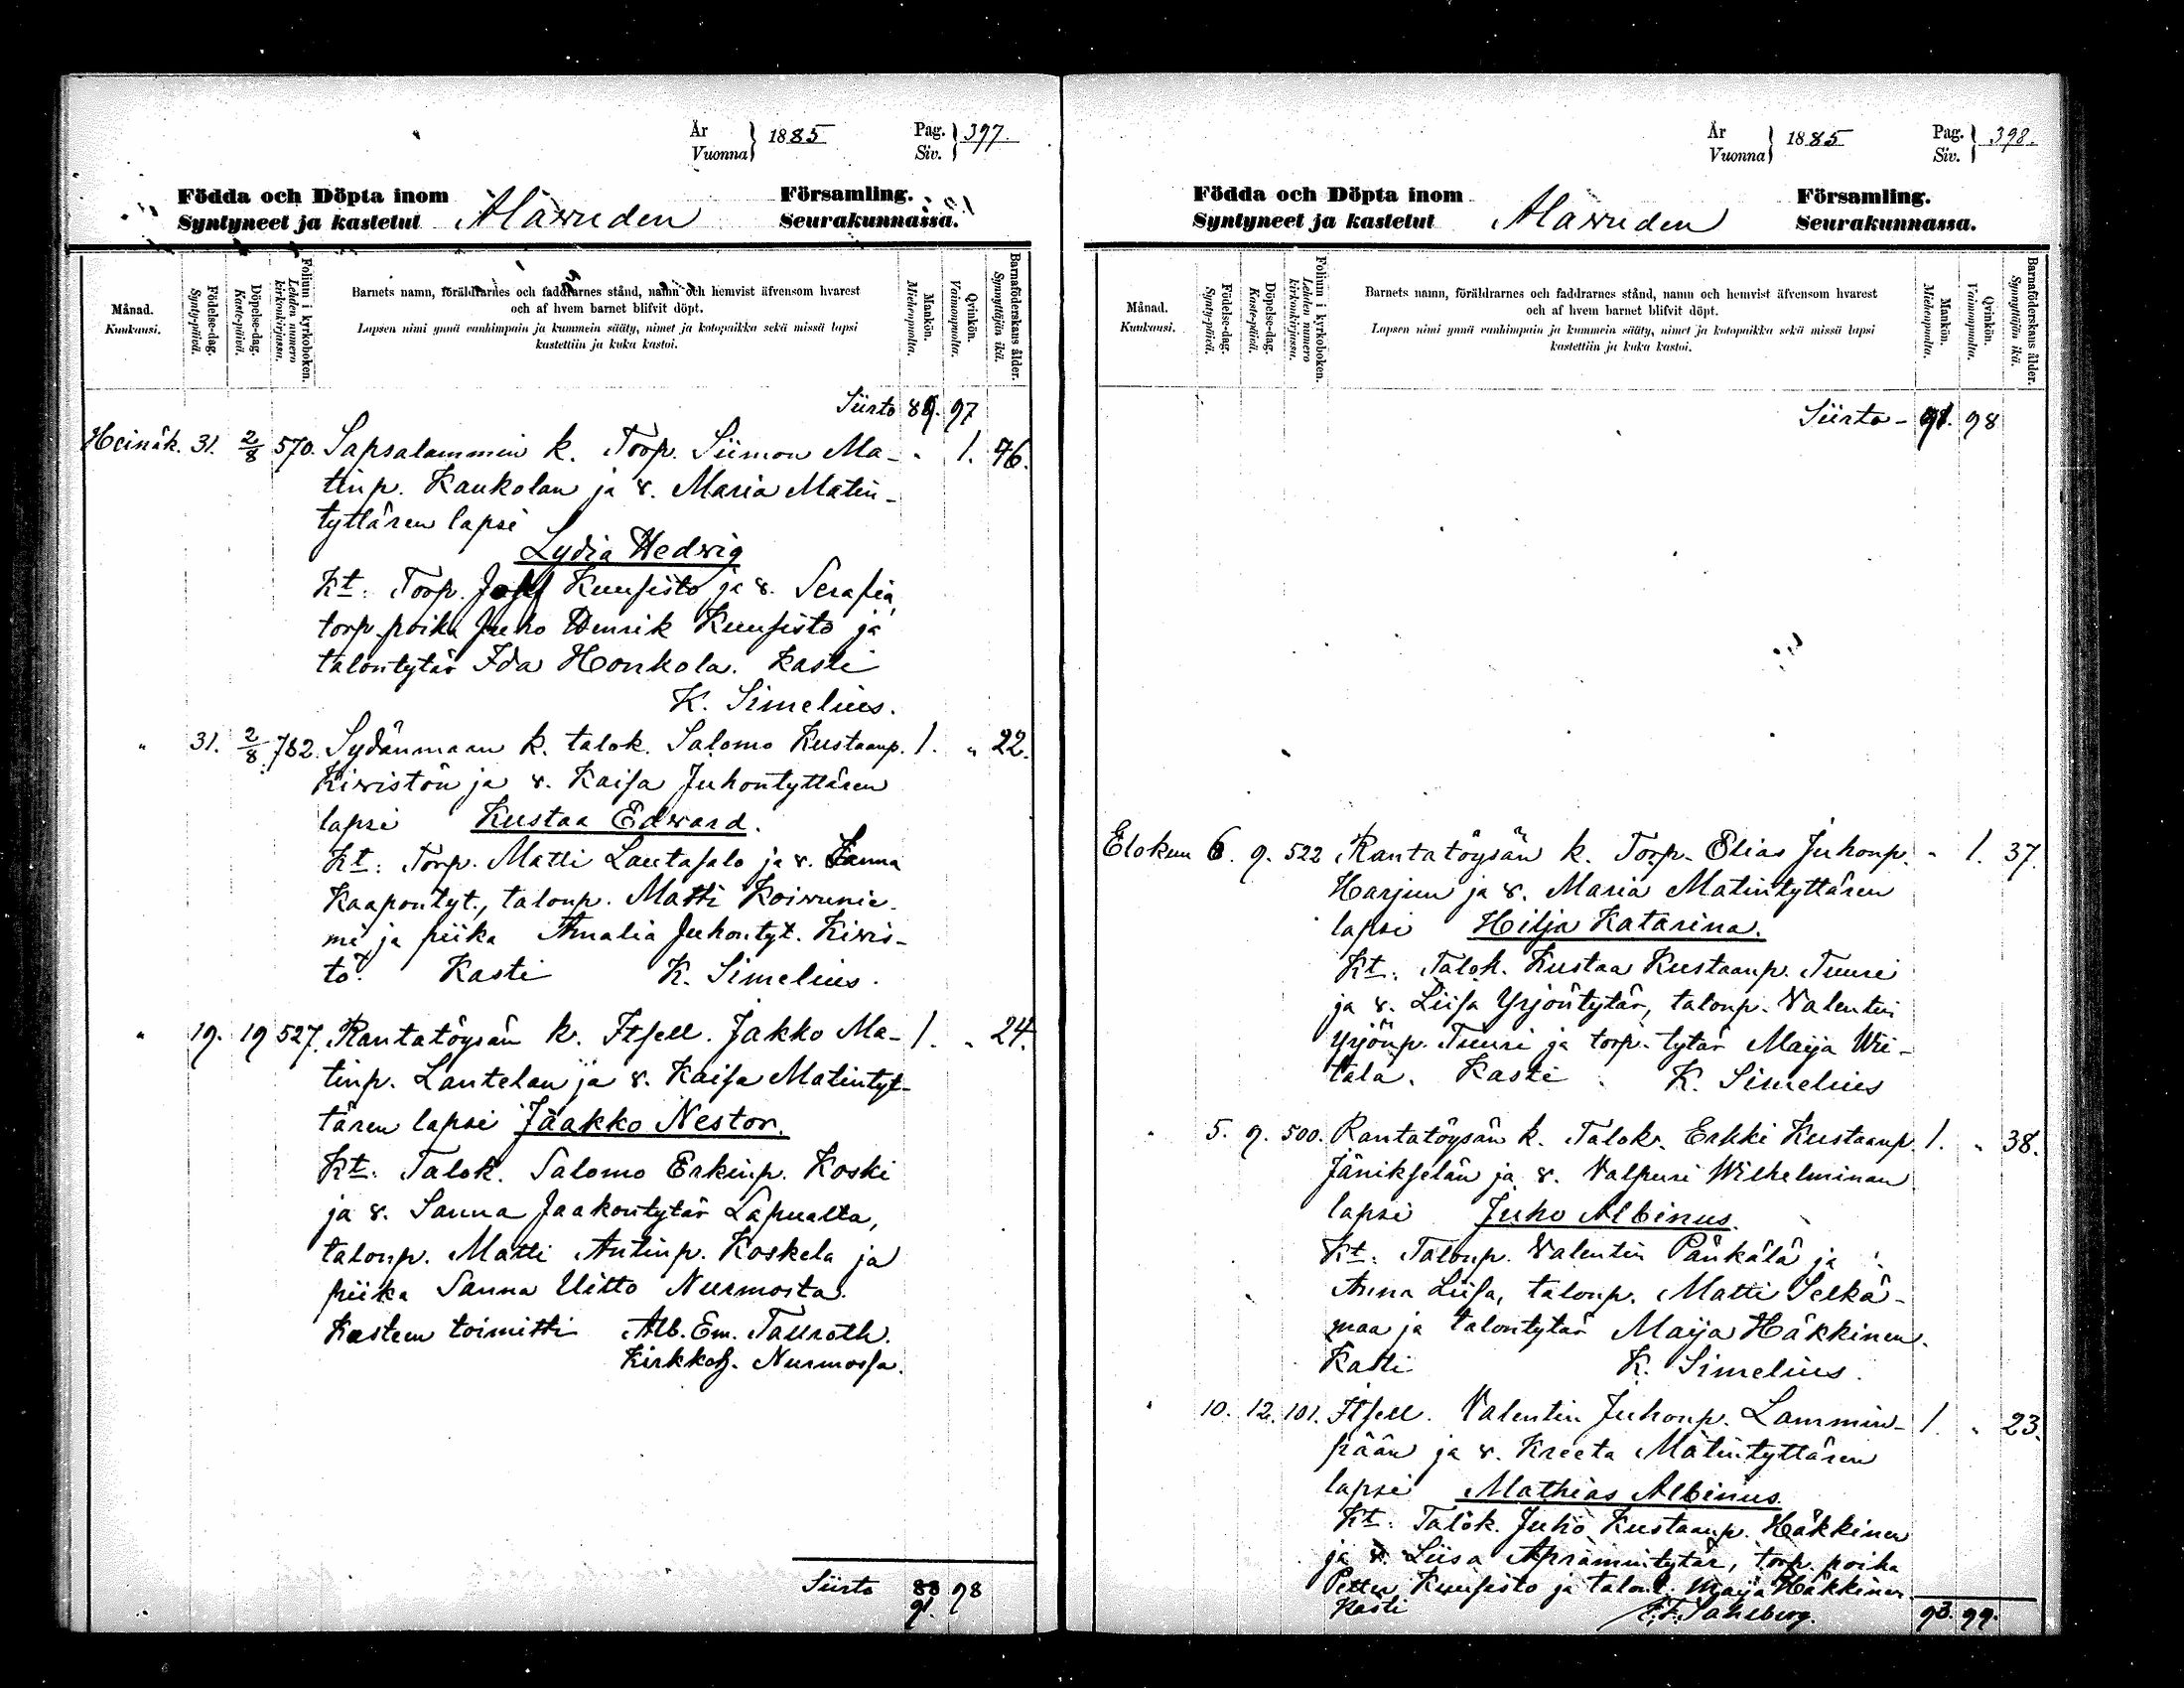 År Vuonna 1885 Pag. Siv. 397.
Födda och Döpta inom Alavuden Församling.
Syntyneet ja kastetut Seurakunnassa.
Månad. Kuukausi.
Födelse-dag. Synty-päivä.
Döpelse-dag. Kaste-päivä.
Folium i kyrkoboken. Lehden numero kirkonkirjassa.
Barnets namn, föräldrarnes och faddrarnes stånd, namn och hemvist äfvensom hvarest
och af hvem barnet blifvit döpt.
Lapsen nimi ynnä vanhimpain ja kummein sääty, nimet ja kotopaikka sekä missä lapsi
kastettiin ja kuka kastoi.
Mankön. Miehenpuolta.
Qvinkön. Vaimonpuolta.
Barnaföderskans ålder. Synnyttäjän ikä.
Siirto 89. 97
Heinäk. 31. 2/8 570. Sapsalammin k. Torp. Siimon Ma- " 1. 46.
tinp. Kaukolan ja v. Maria Matin-
tyttären lapsi
Lydia Hedvig
Kt: Torp. Josef Kuusisto ja v. Serafia,
torp. poika Juho Henrik Kuusisto ja
talontytär Ida Honkola. Kasti
K. Simelius.
" 31. 2/8 782. Sydänmaan k. talok. Salomo Kustaanp. 1. " 22.
Kiviston ja v. Kaisa Juhontyttären
lapsi Kustaa Edvard.
Kt: Torp. Matti Lautasalo ja v. Sanna
Kaapontyt., talonp. Matti Koivunie-
mi ja piika Amalia Juhontyt. Kivis-
tö. Kasti K. Simelius.
" 19. 19 527. Rantatöysän k. Itsell. Jakko Ma- 1. " 24.
tinp. Lantelan ja v. Kaisa Matintyt-
tären lapsi Jaakko Nestor.
Kt: Talok. Salomo Erkinp. Koski
ja v. Sanna Jaakontytär Lapualta,
talonp. Matti Antinp. Koskela ja
piika Sanna Uitto Nurmosta.
Kasteen toimitti Alb. Em. Tallroth.
Kirkkoh. Nurmossa.
Siirto 88 98
91.
År Vuonna 1885 Pag. Siv. 398.
Födda och Döpta inom Alavuden Församling.
Syntyneet ja kastetut Seurakunnassa.
Månad. Kuukausi.
Födelse-dag. Synty-päivä.
Döpelse-dag. Kaste-päivä.
Folium i kyrkoboken. Lehden numero kirkonkirjassa.
Barnets namn, föräldrarnes och faddrarnes stånd, namn och hemvist äfvensom hvarest
och af hvem barnet blifvit döpt.
Lapsen nimi ynnä vanhimpain ja kummein sääty, nimet ja kotopaikka sekä missä lapsi
kastettiin ja kuka kastoi.
Mankön. Miehenpuolta.
Qvinkön. Vaimonpuolta.
Barnaföderskans ålder. Synnyttäjän ikä.
Siirto - 91. 98
Elokuu 6. 9. 522 Rantatöysän k. Torp. Elias Juhonp. " 1. 37.
Harjun ja v. Maria Matintyttären
lapsi Hilja Katarina.
Kt: Talok. Kustaa Kustaanp. Tuuri
ja v. Liisa Yrjöntytär, talonp. Valentin
Yrjönp. Tuuri ja torp. tytär Maija Wii-
tala. Kasti K. Simelius
" 5. 9. 500. Rantatöysän k. Talok. Erkki Kustaanp. 1. " 38.
Jänikselän ja v. Valpuri Wilhelminan
lapsi Juho Albinus.
Kt: Talonp. Valentin Pänkälä ja
Anna Liisa, talonp. Matti Selkä-
maa ja talontytär Maija Häkkinen.
Kasti K. Simelius.
" 10. 12. 101. Itsell. Valentin Juhonp. Lammin- 1. " 23.
pään ja v. Kreeta Matintyttären
lapsi Mathias Albinus.
Kt: Talok. Juho Kustaanp. Häkkinen
ja v. Liisa Apramintytär, torp. poika
Petter Kuusisto ja talont. Maija Häkkinen
Kasti 93. 99.